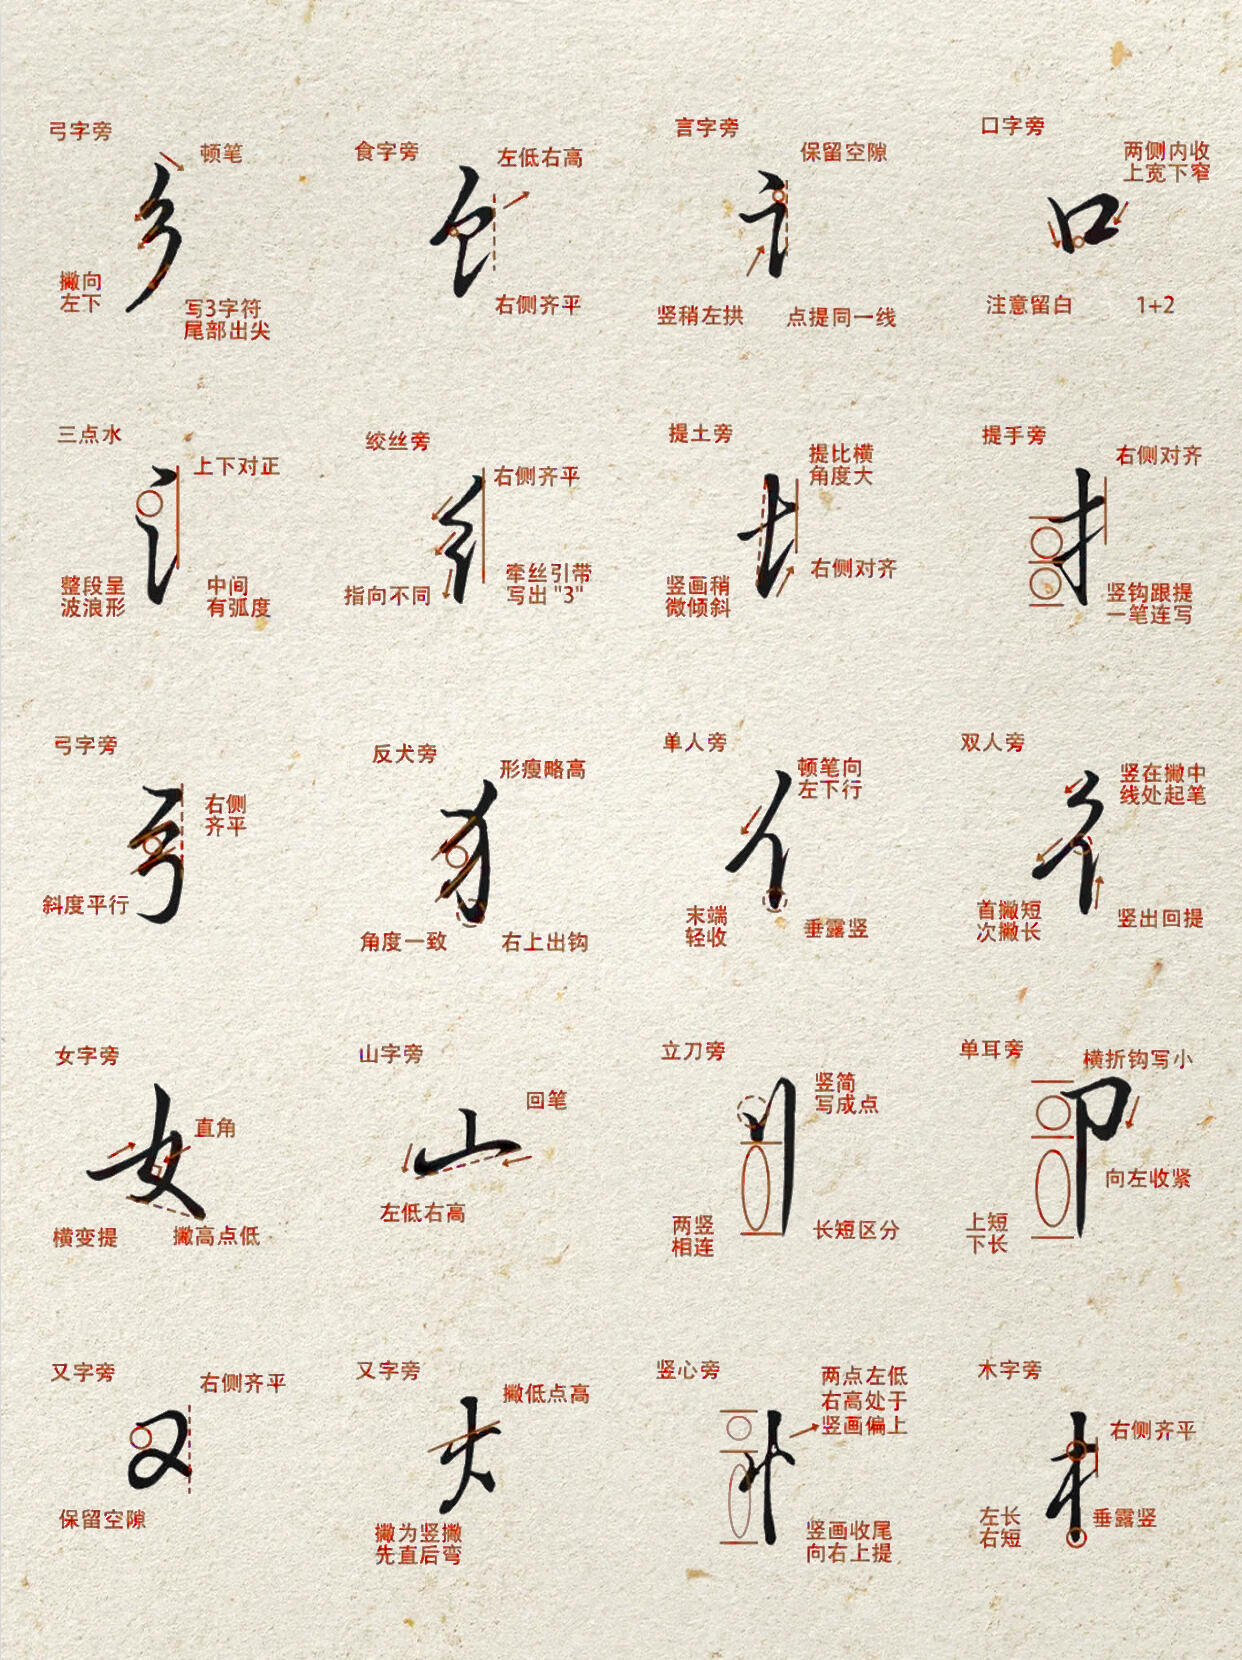 弓字旁
顿笔
乡
撇向
左下
写3字符
尾部出尖
食字旁
左低右高
饣
右侧齐平
言字旁
保留空隙
讠
竖稍左拱
点提同一线
口字旁
两侧内收
上宽下窄
口
注意留白
1+2
三点水
上下对正
氵
整段呈
波浪形
中间
有弧度
绞丝旁
右侧齐平
纟
指向不同
牵丝引带
写出 "3"
提土旁
提比横
角度大
土
竖画稍
微倾斜
右侧对齐
提手旁
右侧对齐
扌
竖钩跟提
一笔连写
弓字旁
右侧
齐平
弓
斜度平行
反犬旁
形瘦略高
犭
角度一致
右上出钩
单人旁
顿笔向
左下行
亻
末端
轻收
垂露竖
双人旁
竖在撇中
线处起笔
彳
首撇短
次撇长
竖出回提
女字旁
直角
女
横变提
撇高点低
山字旁
回笔
山
左低右高
立刀旁
竖简
写成点
刂
两竖
相连
长短区分
单耳旁
横折钩写小
卩
向左收紧
上短
下长
又字旁
右侧齐平
又
保留空隙
又字旁
撇低点高
撇为竖撇
先直后弯
竖心旁
两点左低
右高处于
竖画偏上
忄
竖画收尾
向右上提
木字旁
右侧齐平
木
左长
右短
垂露竖